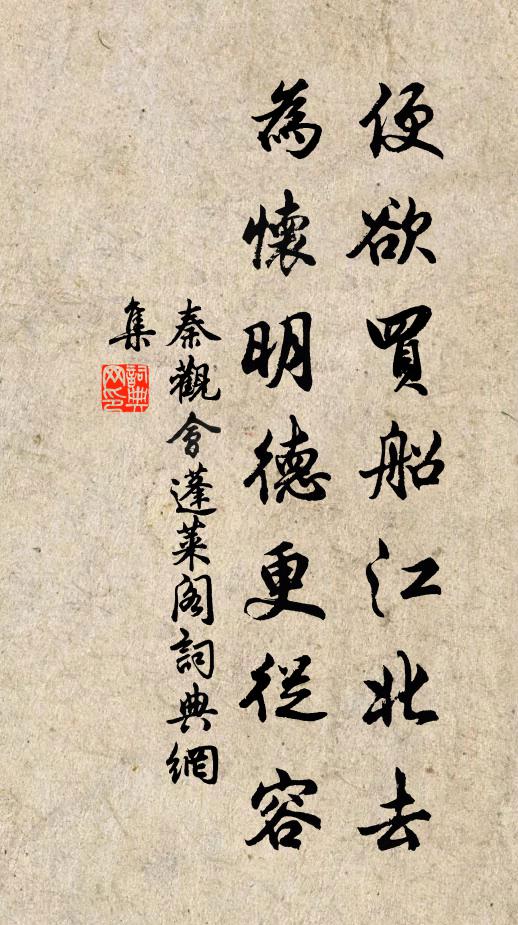 便欲買船江北去
為懷明德更從容
秦觀會蓬萊閣詞典網
集
詞典網印